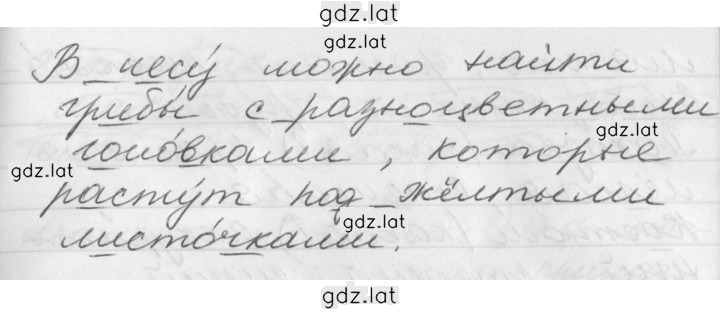 gdz.lat
gdz.lat
В лесу́ можно найти
грибы́ с разноцветными
gdz.lat
голо́вками, которые
gdz.lat
расту́т под жёлтыми
gdz.lat
листо́чками.
gdz.lat